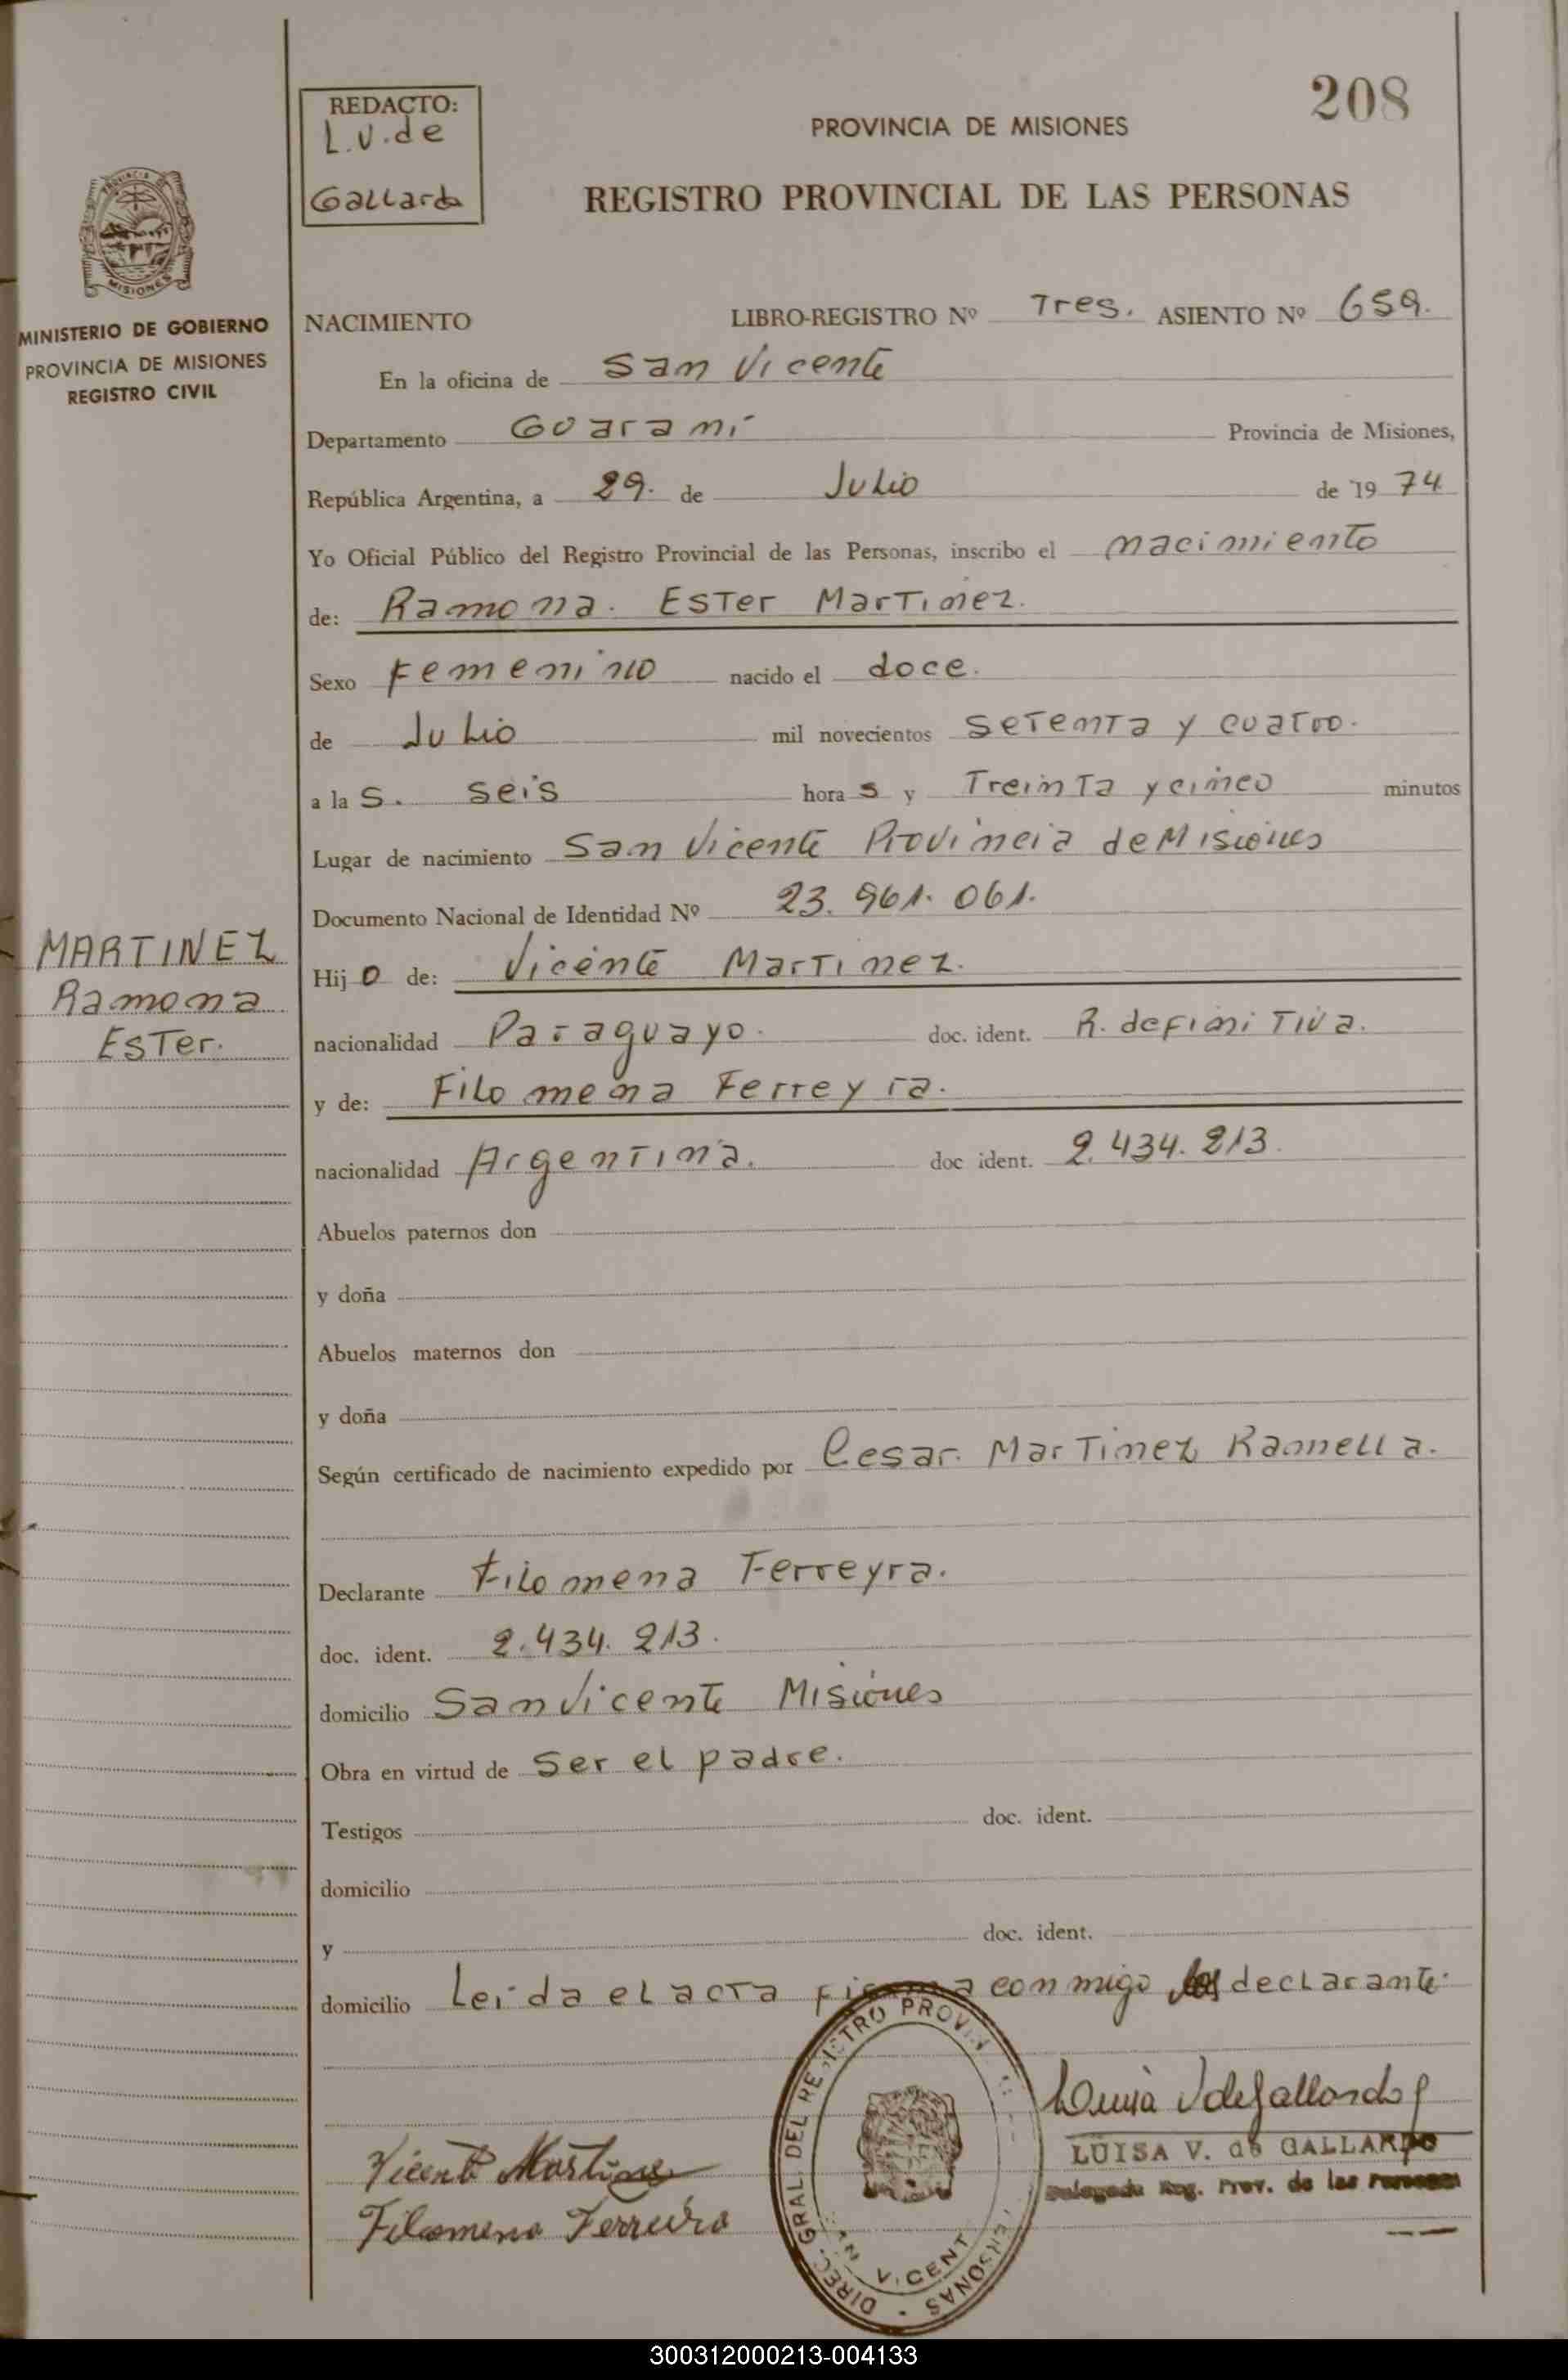 208
REDACTO:
L.V. de
Gallardo
PROVINCIA DE MISIONES
REGISTRO PROVINCIAL DE LAS PERSONAS
MISIONES
MINISTERIO DE GOBIERNO
PROVINCIA DE MISIONES
REGISTRO CIVIL
NACIMIENTO LIBRO-REGISTRO Nº Tres. ASIENTO Nº 659.
En la oficina de San Vicente
Departamento Guaraní Provincia de Misiones,
República Argentina, a 29. de Julio de 19 74
Yo Oficial Público del Registro Provincial de las Personas, inscribo el nacimiento
de: Ramona. Ester Martinez.
Sexo Femenino nacido el doce.
de Julio mil novecientos setenta y cuatro.
a la s. seis hora s y Treinta y cinco minutos
Lugar de nacimiento San Vicente Provincia de Misiones
Documento Nacional de Identidad Nº 23.961.061.
MARTINEZ
Ramona
Ester.
Hij o de: Vicente Martinez.
nacionalidad Paraguayo. doc. ident. R. definitiva.
y de: Filomena Ferreyra.
nacionalidad Argentina. doc ident. 2.434.213.
Abuelos paternos don
y doña
Abuelos maternos don
y doña
Según certificado de nacimiento expedido por Cesar. Martinez Ramella.
Declarante Filomena Ferreyra.
doc. ident. 2.434.213.
domicilio San Vicente Misiones
Obra en virtud de ser el padre.
Testigos doc. ident.
domicilio
y doc. ident.
domicilio Leida el acta firma conmigo los declarante.
DIREC. GRAL. DEL REGISTRO PROVIN PERSONAS
SAN VICENTE
Luisa V de Gallardo
LUISA V. de GALLARDO
Delegada Reg. Prov. de las Personas
Vicente Martinez
Filomena Ferreira
300312000213-004133